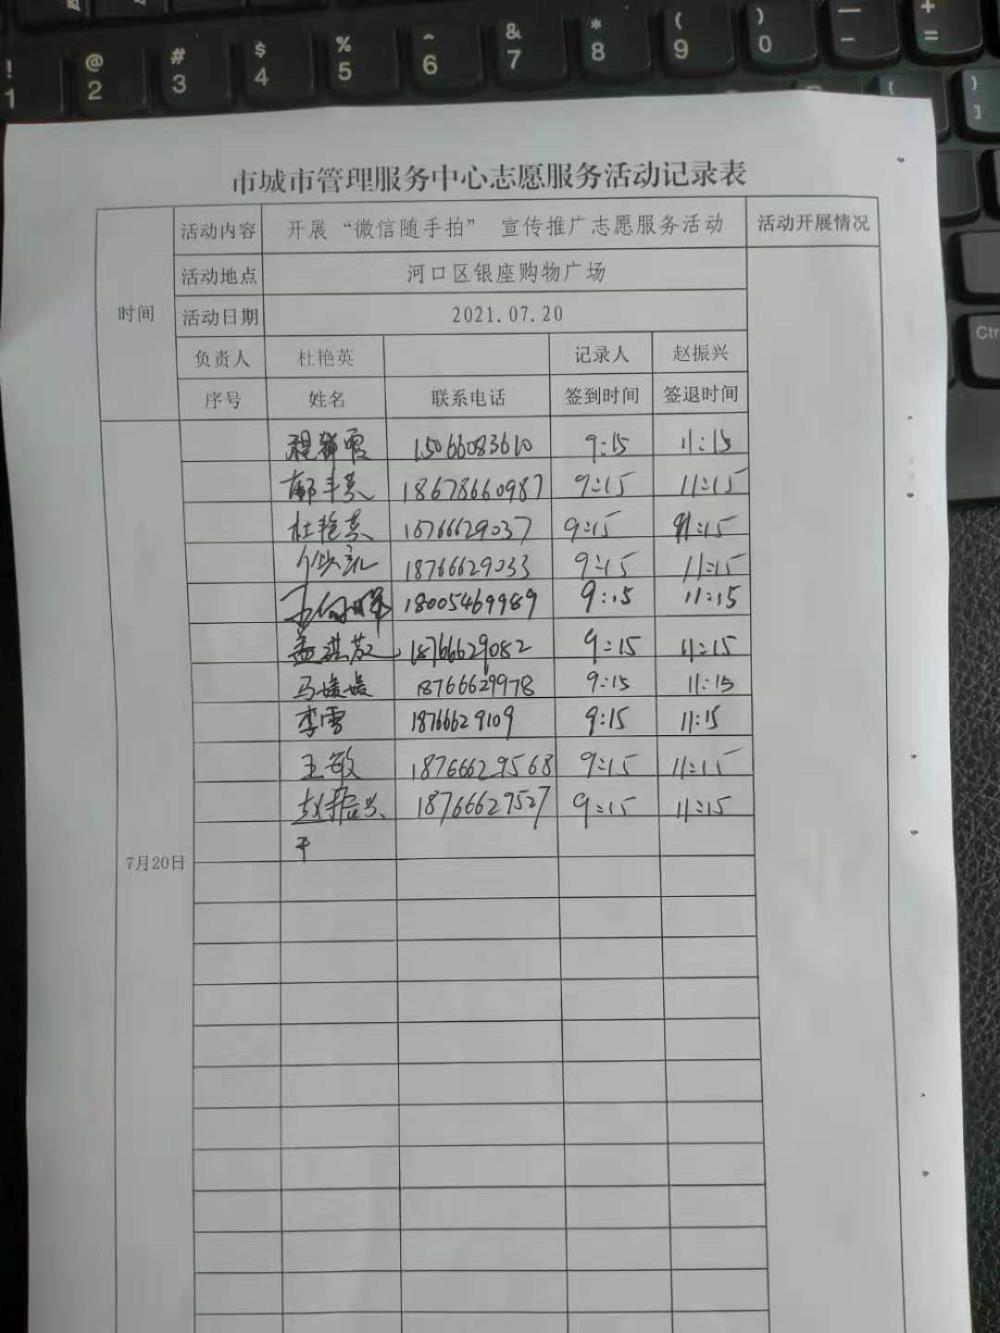 ! @ # $ % ^ & * ( ) — +
1 2 3 4 5 6 7 8 9 0 - =
}
]
Ctrl
市城市管理服务中心志愿服务活动记录表
时间 活动内容 开展“微信随手拍” 宣传推广志愿服务活动 活动开展情况
活动地点 河口区银座购物广场
活动日期 2021.07.20
负责人 杜艳英 记录人 赵振兴
序号 姓名 联系电话 签到时间 签退时间
15066083610 9:15 11:15
18678660987 9:15 11:15
杜艳英 18766629037 9:15 11:15
18766629033 9:15 11:15
18005469989 9:15 11:15
18766629082 9:15 11:15
马媛媛 18766629978 9:15 11:15
李雪 18766629109 9:15 11:15
王敏 18766629568 9:15 11:15
赵振兴 18766629527 9:15 11:15
7月20日